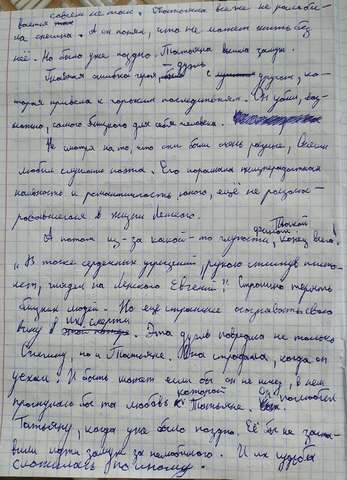 совсем не так. Татьяна все же не разлюби-
на Онегина. А он понял, что не может жить без
неё. Но было уже поздно. Татьяна вышла замуж.
Главная ошибка героя, - дуэль с другом, ко-
торая привела к горьким последствиям. Он убил, воз-
можно, самого близкого для себя человека.
Не смотря на то, что они были очень разные, Онегин
любил слушать поэта. Его поражала
наивность и романтичность юного, ещё не разоча-
ровавшегося в жизни Ленского.
А потом из-за какой-то глупости, такой финал, конец всего!
"В тоске сердечных угрызений, рукою стиснув писто-
лет, глядит на Ленского Евгений". Страшно терять
близких людей. Но ещё страшнее осознавать свою
вину в их смерти. Эта дуэль повредила не только
Онегину, но и Татьяне. Она страдала, когда он
уехал. И быть может если бы он не уехал, в нем
проснулась бы та любовь к Татьяне. которой он полюбил
Татьяну, когда уже было поздно. Её бы не заста-
вили идти замуж за нелюбимого. И их судьба
сложилась по иному.